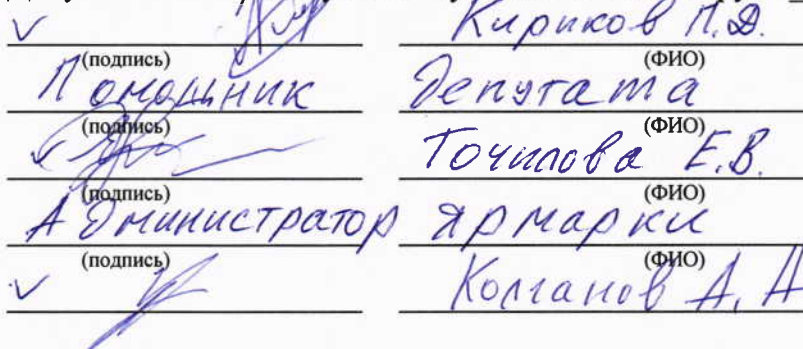 ✓ Кириков П.Д.
(подпись) (ФИО)
Помощник Депутата
(подпись) (ФИО)
✓ Точилова Е.В.
(подпись) (ФИО)
Администратор Ярмарки
(подпись) (ФИО)
✓ Колганов А.А